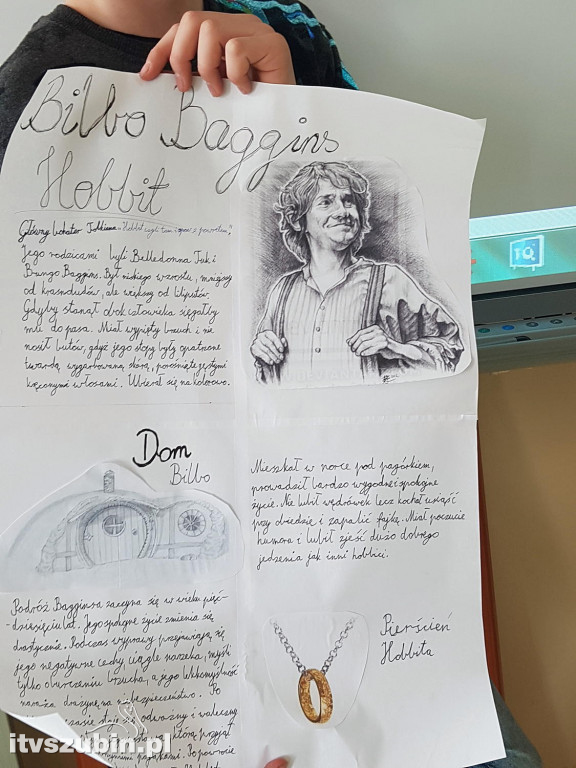 Bilbo Baggins
Hobbit
Główny bohater Tolkiena - "Hobbit czyli tam i z powrotem"
Jego rodzicami byli Belladonna Tuk i
Bungo Baggins. Był niskiego wzrostu, mniejszy
od krasnudów, ale większy od liliputów.
Gdyby stanął obok człowieka sięgałby
mu do pasa. Miał wypięty brzuch i nie
nosił butów, gdyż jego stopy były opatrzone
twardą, wygarbowaną skórą, porośnięte gęstymi
kręconymi włosami. Ubierał się na kolorowo.
Dom
Bilbo
Mieszkał w norce pod pagórkiem,
prowadził bardzo wygodne i spokojne
życie. Nie lubił wędrówek lecz kochał usiąść
przy obiedzie i zapalić fajkę. Miał poczucie
humoru i lubił zjeść dużo dobrego
jedzenia jak inni hobbici.
Podróż Bagginsa zaczyna się w wieku pięć-
dziesięciu lat. Jego spokojne życie zmienia się
drastycznie. Podczas wyprawy przejawiają się
jego negatywne cechy, ciągle narzeka, myśli
tylko o burczeniu brzucha, a jego lekkomyślność
naraża drużynę na niebezpieczeństwo. Po
czasie staje się odważny i waleczny
przyjął
pająkami. Po powrocie
Pierścień
Hobbita
itvszubin.pl
TQ